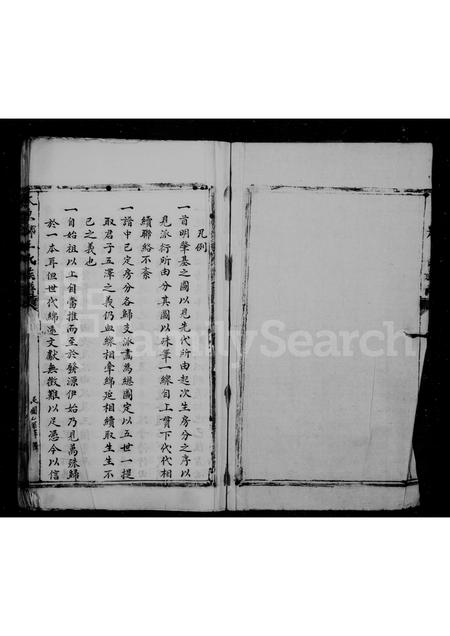 凡例
一首明肇基之圖以見先代所由起次生房分之序以
見派衍所由分其圖以硃筆一線自上貫下代代相
續聯絡不紊
一譜中已定房分各歸支派畫為總圖定以五世一提
取君子五澤之義仍血線相牽綿延相續取生生不
已之義也
一自始祖以上自當推而至於發源伊始乃見萬殊歸
於一本耳但世代綿遠文獻無徵難以足憑今以信
FamilySearch